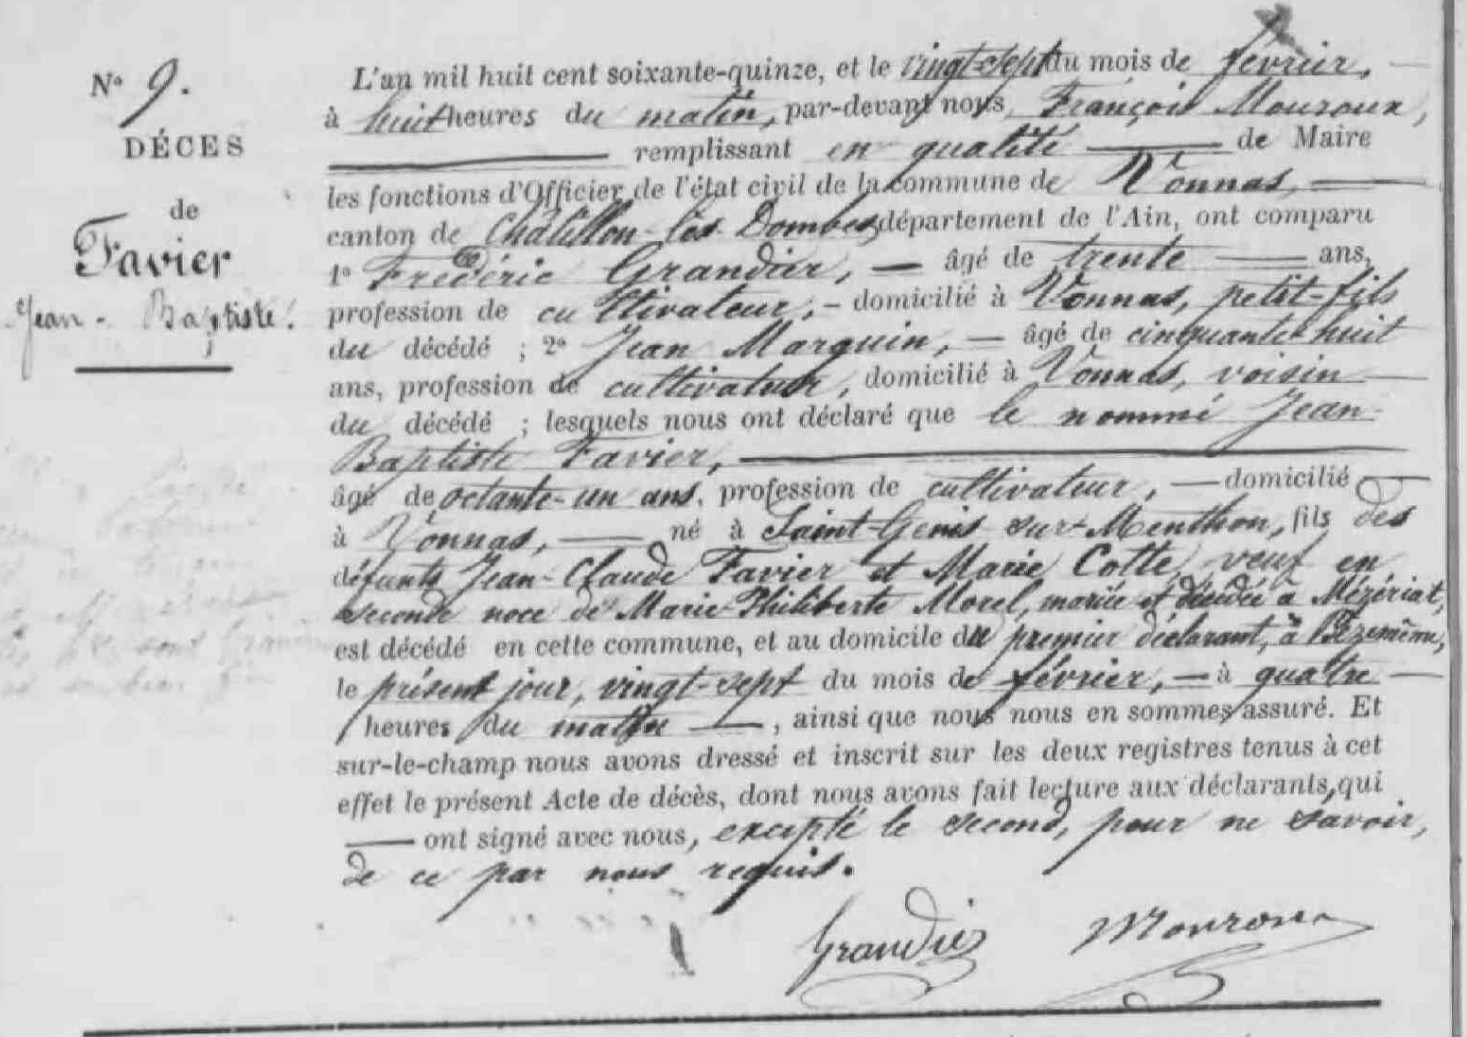 N° 9.
DÉCES
de
Favier
Jean-Baptiste.
L'an mil huit cent soixante-quinze, et le vingt-sept du mois de février,
à huit heures du matin, par-devant nous, François Mouroux,
remplissant en qualité de Maire
les fonctions d'Officier de l'état civil de la commune de Vonnas,
canton de Châtillon-les-Dombes, département de l'Ain, ont comparu
1° Frédéric Grandier, — âgé de trente ans,
profession de cultivateur, - domicilié à Vonnas, petit-fils
du décédé ; 2° Jean Marguin, — âgé de cinquante-huit
ans, profession de cultivateur, domicilié à Vonnas, voisin
du décédé ; lesquels nous ont déclaré que le nommé Jean-
Baptiste Favier,
âgé de octante-un ans, profession de cultivateur, — domicilié
à Vonnas, — né à Saint-Genis-sur-Menthon, fils des
défunts Jean-Claude Favier et Marie Cotte, veuf en
seconde noce de Marie-Philiberte Morel, mariée et décédée à Mézériat,
est décédé en cette commune, et au domicile du premier déclarant, à
le présent jour, vingt-sept du mois de février, — à quatre
heures du matin —, ainsi que nous nous en sommes assuré. Et
sur-le-champ nous avons dressé et inscrit sur les deux registres tenus à cet
effet le présent Acte de décès, dont nous avons fait lecture aux déclarants, qui
— ont signé avec nous, excepté le second, pour ne savoir,
de ce par nous requis.
Grandier Mouroux